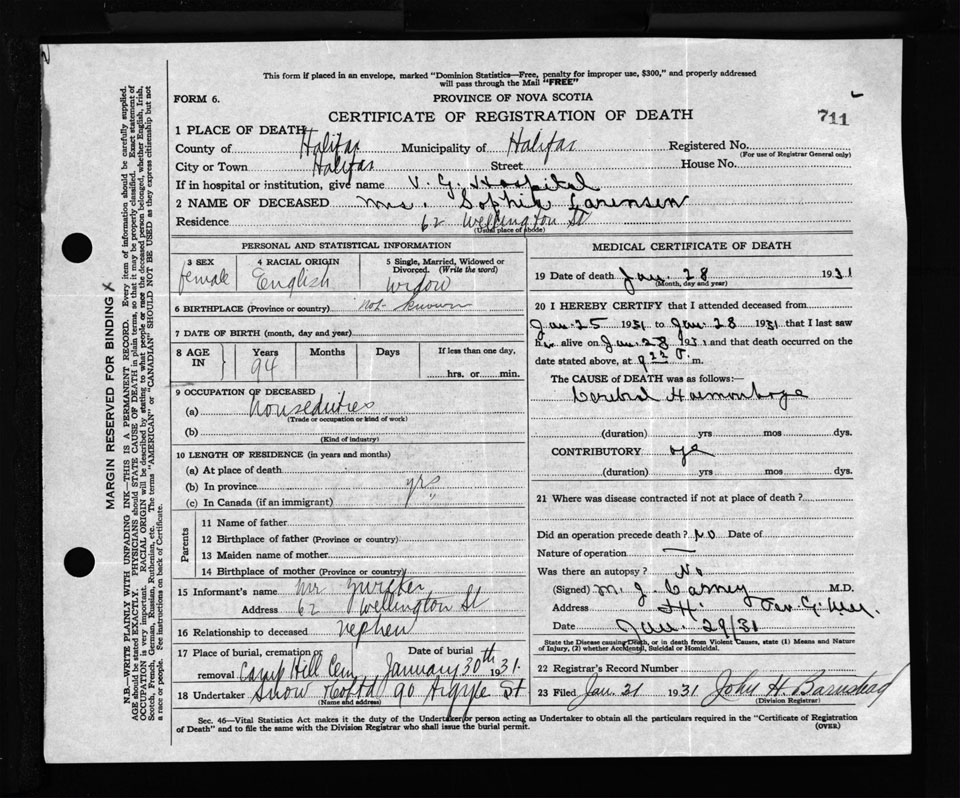 This form if placed in an envelope, marked "Dominion Statistics—Free, penalty for improper use, $300," and properly addressed
will pass through the Mail "FREE"
FORM 6. PROVINCE OF NOVA SCOTIA
CERTIFICATE OF REGISTRATION OF DEATH 711
1 PLACE OF DEATH
County of Halifax Municipality of Halifax Registered No.
(For use of Registrar General only)
City or Town Halifax Street House No.
If in hospital or institution, give name V. G. Hospital
2 NAME OF DECEASED Mrs. Sophie Larensen
Residence 62 Wellington St
(Usual place of abode)
PERSONAL AND STATISTICAL INFORMATION
3 SEX 4 RACIAL ORIGIN 5 Single, Married, Widowed or
Divorced. (Write the word)
female English widow
6 BIRTHPLACE (Province or country) not known
7 DATE OF BIRTH (month, day and year)
8 AGE IN Years Months Days If less than one day,
94 hrs. or min.
9 OCCUPATION OF DECEASED
(a) houseduties
(Trade or occupation or kind of work)
(b)
(Kind of industry)
10 LENGTH OF RESIDENCE (in years and months)
(a) At place of death
(b) In province yrs
(c) In Canada (if an immigrant) "
Parents
11 Name of father
12 Birthplace of father (Province or country)
13 Maiden name of mother
14 Birthplace of mother (Province or country)
15 Informant's name Mr. Zwicker
Address 62 Wellington St
16 Relationship to deceased nephew
17 Place of burial, cremation or Date of burial
removal Camp Hill Cem January 30th 1931.
18 Undertaker Snow Co Ltd 90 Argyle St.
(Name and address)
MEDICAL CERTIFICATE OF DEATH
19 Date of death Jan. 28 1931
(Month, day and year)
20 I HEREBY CERTIFY that I attended deceased from
Jan. 25 1931 to Jan. 28 1931 that I last saw
her alive on Jan. 28 1931 and that death occurred on the
date stated above, at 9 22 P. m.
The CAUSE of DEATH was as follows:
Cerebral Haemorrhage
(duration) yrs mos dys.
CONTRIBUTORY age
(duration) yrs mos dys.
21 Where was disease contracted if not at place of death?
Did an operation precede death? No Date of
Nature of operation
Was there an autopsy? No
(Signed) M. J. Carney M.D.
Address
Date Jan. 29/31
State the Disease causing Death, or in death from Violent Causes, state (1) Means and Nature
of Injury, (2) whether Accidental, Suicidal or Homicidal.
22 Registrar's Record Number
23 Filed Jan. 31 1931 John H. Barnstead
(Division Registrar)
Sec. 46—Vital Statistics Act makes it the duty of the Undertaker or person acting as Undertaker to obtain all the particulars required in the "Certificate of Registration
of Death" and to file the same with the Division Registrar who shall issue the burial permit. (OVER)
MARGIN RESERVED FOR BINDING
N.B.—WRITE PLAINLY WITH UNFADING INK—THIS IS A PERMANENT RECORD. Every item of information should be carefully supplied.
AGE should be stated EXACTLY. PHYSICIANS should STATE CAUSE OF DEATH in plain terms, so that it may be properly classified. Exact statement of
OCCUPATION is very important. RACIAL ORIGIN will be described by stating to what people or race the deceased person belonged, whether English, Irish,
Scotch, French, German, Russian, Ruthenian, etc. The terms "AMERICAN" or "CANADIAN" SHOULD NOT BE USED as they express citizenship but not
a race or people. See instructions on back of Certificate.